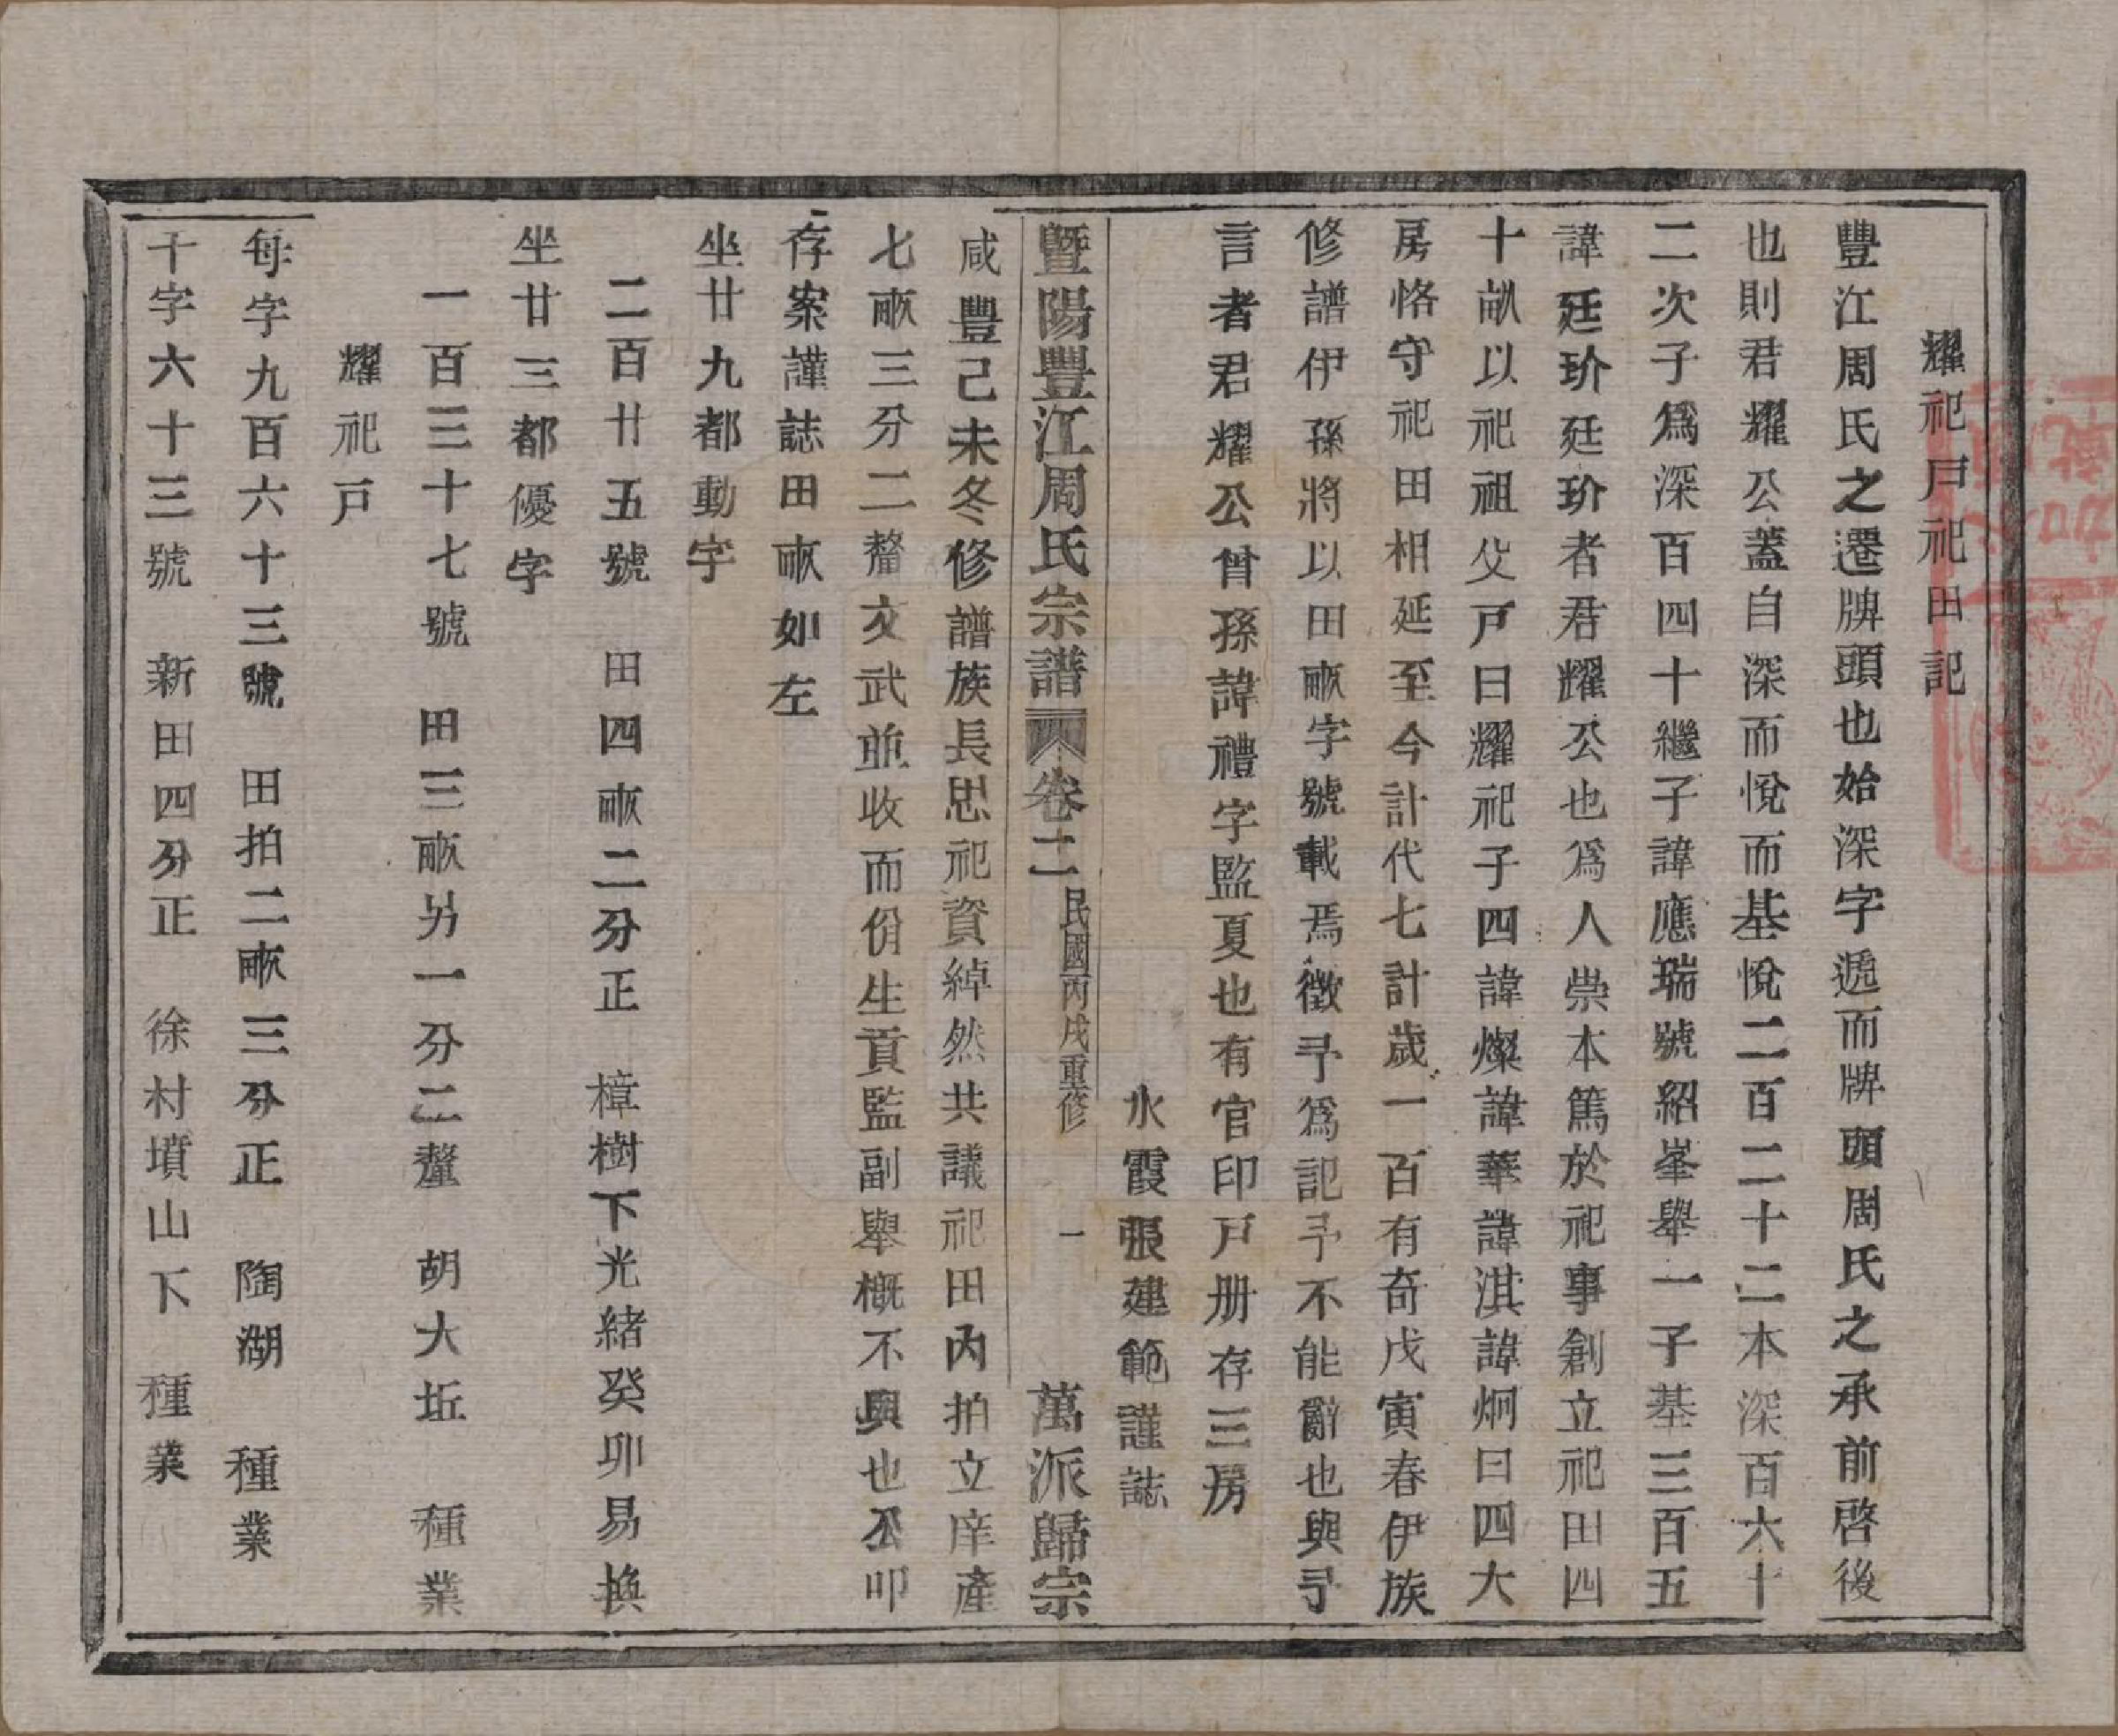 耀祀戸祀田記
豐江周氏之遷牌頭也始深字遞而牌頭周氏之承前啓後
也則君耀公蓋自深而悅而基悅二百二十二本深百六十
二次子爲深百四十繼子諱應瑞號紹峯舉一子基三百五
諱廷玠廷玠者君耀公也爲人崇本篤於祀事創立祀田四
十畝以祀祖父戸曰耀祀子四諱燦諱華諱淇諱炯曰四大
房恪守祀田相延至今計代七計歲一百有奇戊寅春伊族
修譜伊孫將以田畝字號載焉徵予爲記予不能辭也與予
言者君耀公曾孫諱禮字監夏也有官印戸册存三房
水霞張建範謹誌
暨陽豐江周氏宗譜 卷二 民國丙戌重修 一 萬派歸宗
咸豐己未冬修譜族長思祀資綽然共議祀田內拍立庠產
七畝三分二釐文武並收而份生貢監副舉概不與也公叩
存案謹誌田畝如左
坐廿九都動字
二百廿五號 田四畝二分正 樟樹下光緒癸卯易換
坐廿三都優字
一百三十七號 田三畝另一分二釐 胡大坵 種業
耀祀戸
每字九百六十三號 田拍二畝三分正 陶湖 種業
十字六十三號 新田四分正 徐村墳山下 種業